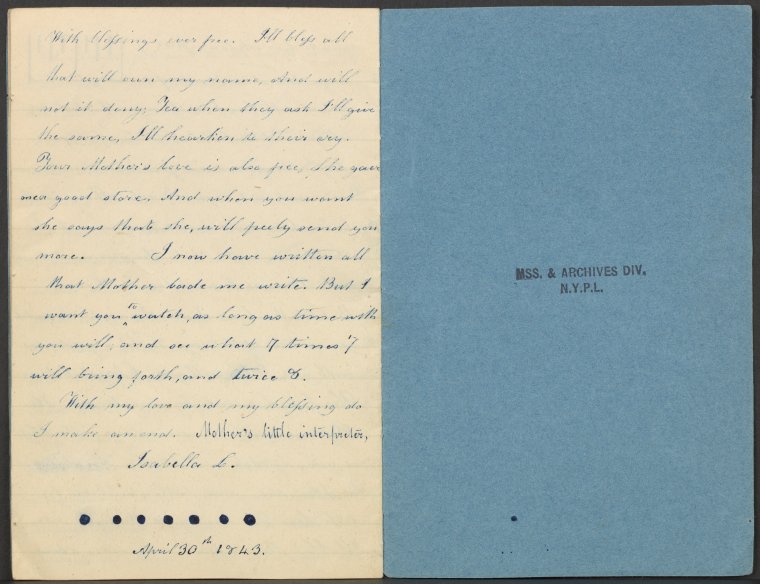 With blessings ever free. I'll bless all
that will own my name, And will
not it deny; Yea when they ask I'll give
the same, I'll hearken to their cry.
Your Mother's love is also free, She gave
me a good store. And when you want
she says that she, will freely send you
more. I now have written all
that Mother bade me write. But I
want you to watch, as long as time with
you will, and see what 7 times 7
will bring forth, and twice 8.
With my love and my blessing do
I make an end. Mother's little interpreter,
Isabella L.
April 30th 1843.
MSS. & ARCHIVES DIV.
N.Y.P.L.